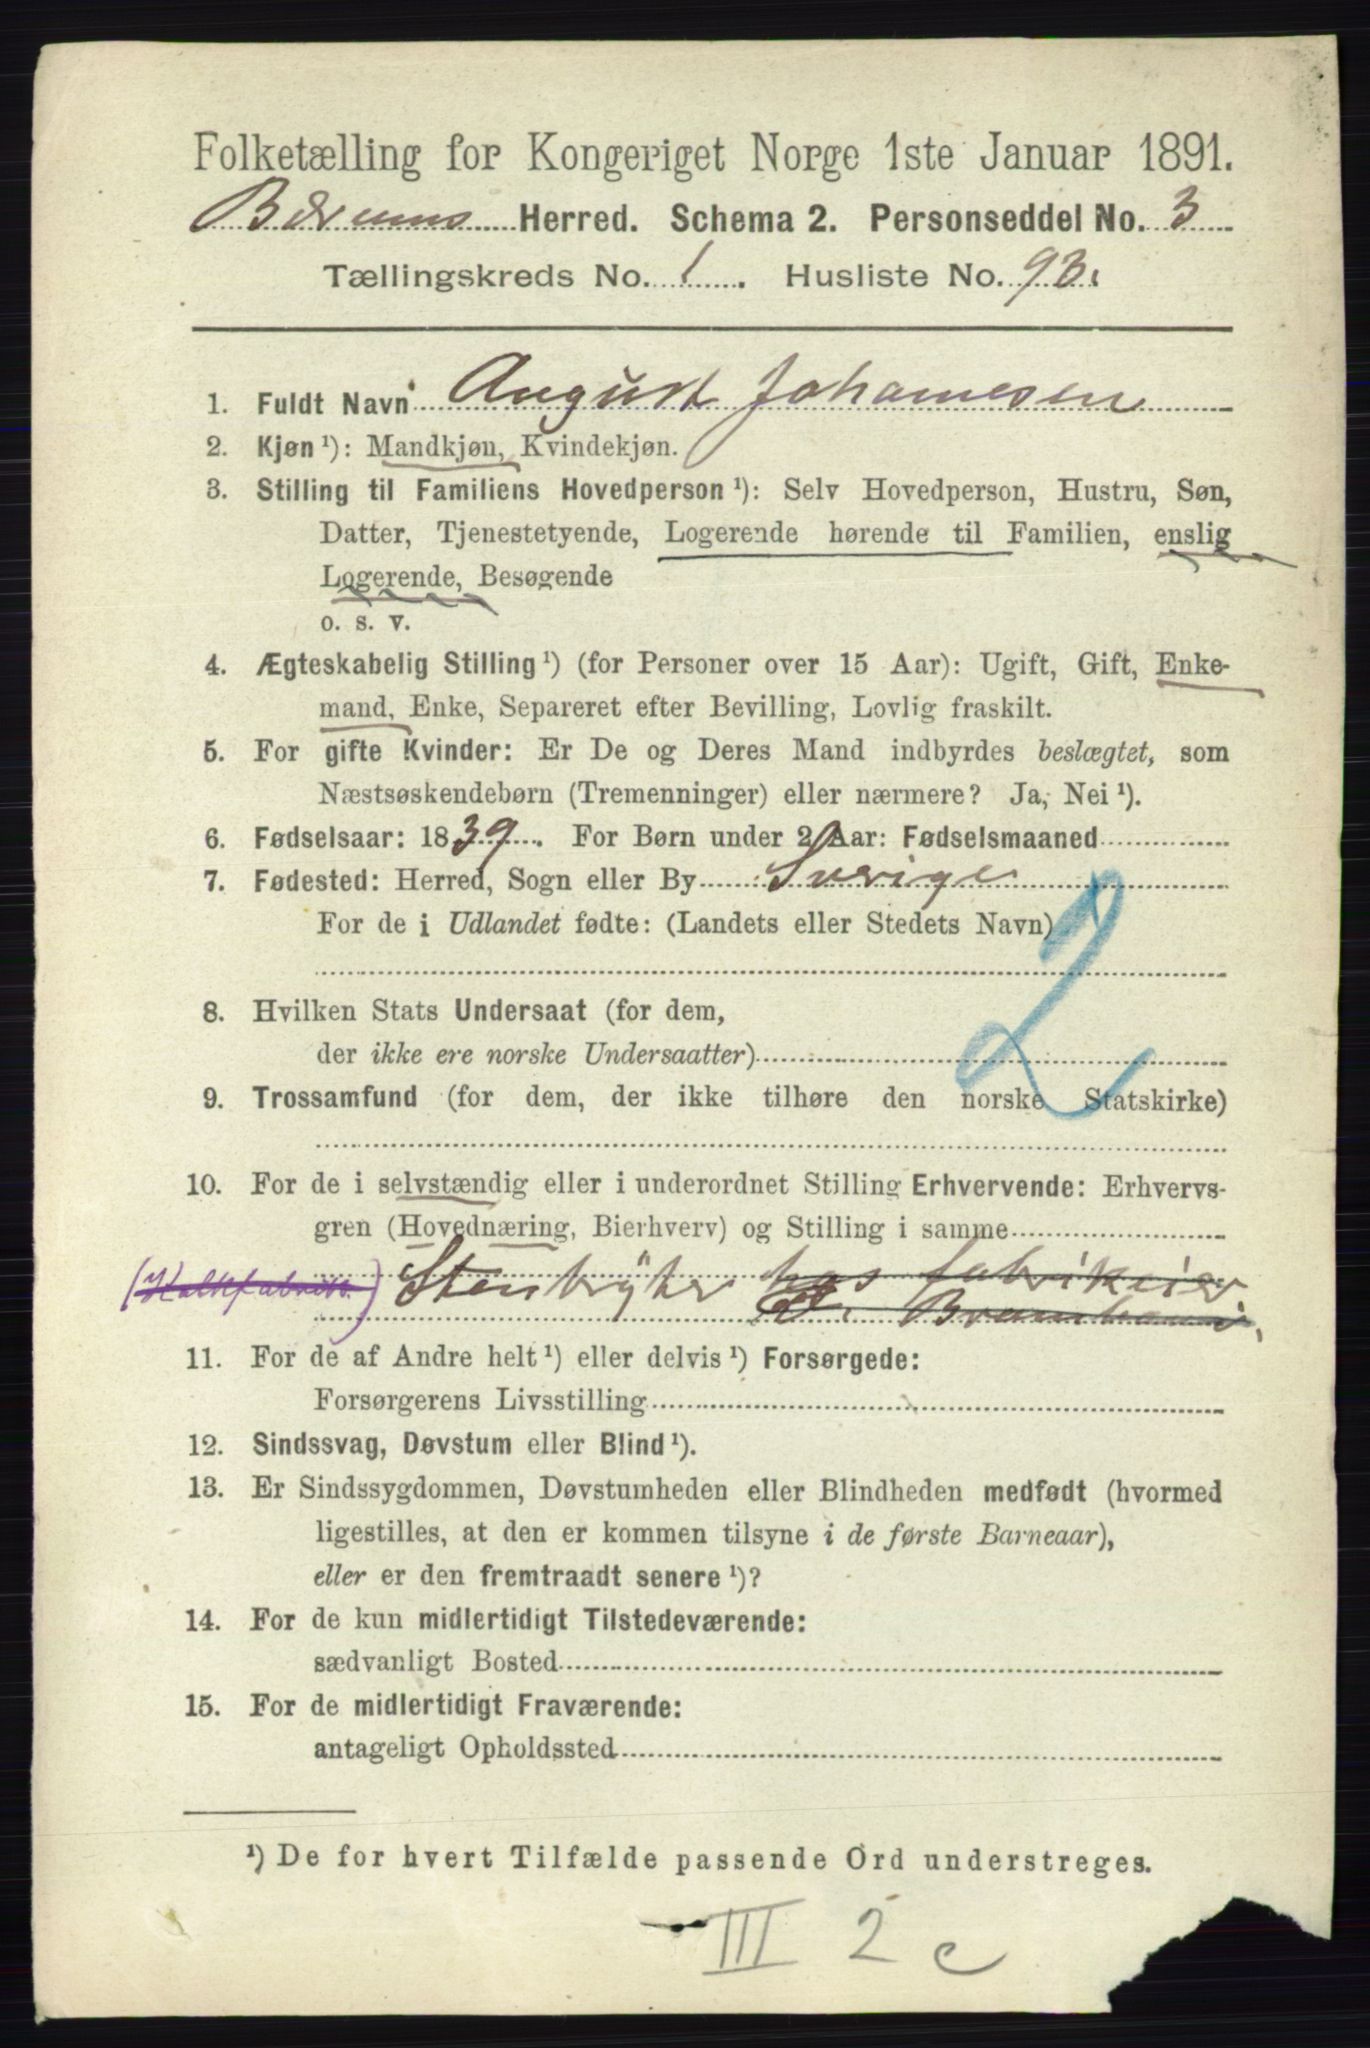 Folketælling for Kongeriget Norge 1ste Januar 1891.
Bærums Herred. Schema 2. Personseddel No. 3
Tællingskreds No. 1. Husliste No. 93.
1. Fuldt Navn August Johannesen
2. Kjøn ¹): Mandkjøn, Kvindekjøn.
3. Stilling til Familiens Hovedperson ¹): Selv Hovedperson, Hustru, Søn,
Datter, Tjenestetyende, Logerende hørende til Familien, enslig
Logerende, Besøgende
o. s. v.
4. Ægteskabelig Stilling ¹) (for Personer over 15 Aar): Ugift, Gift, Enke-
mand, Enke, Separeret efter Bevilling, Lovlig fraskilt.
5. For gifte Kvinder: Er De og Deres Mand indbyrdes beslægtet, som
Næstsøskendebørn (Tremenninger) eller nærmere? Ja, Nei ¹).
6. Fødselsaar: 1839. For Børn under 2 Aar: Fødselsmaaned
7. Fødested: Herred, Sogn eller By Sverige
For de i Udlandet fødte: (Landets eller Stedets Navn)
2
8. Hvilken Stats Undersaat (for dem,
der ikke ere norske Undersaatter)
9. Trossamfund (for dem, der ikke tilhøre den norske Statskirke)
10. For de i selvstændig eller i underordnet Stilling Erhvervende: Erhvervs-
gren (Hovednæring, Bierhverv) og Stilling i samme
(Kalkfabrik.) Stenbryter hos fabrikeier
11. For de af Andre helt ¹) eller delvis ¹) Forsørgede:
Forsørgerens Livsstilling
12. Sindssvag, Døvstum eller Blind ¹).
13. Er Sindssygdommen, Døvstumheden eller Blindheden medfødt (hvormed
ligestilles, at den er kommen tilsyne i de første Barneaar),
eller er den fremtraadt senere ¹)?
14. For de kun midlertidigt Tilstedeværende:
sædvanligt Bosted
15. For de midlertidigt Fraværende:
antageligt Opholdssted
¹) De for hvert Tilfælde passende Ord understreges.
III 2 c